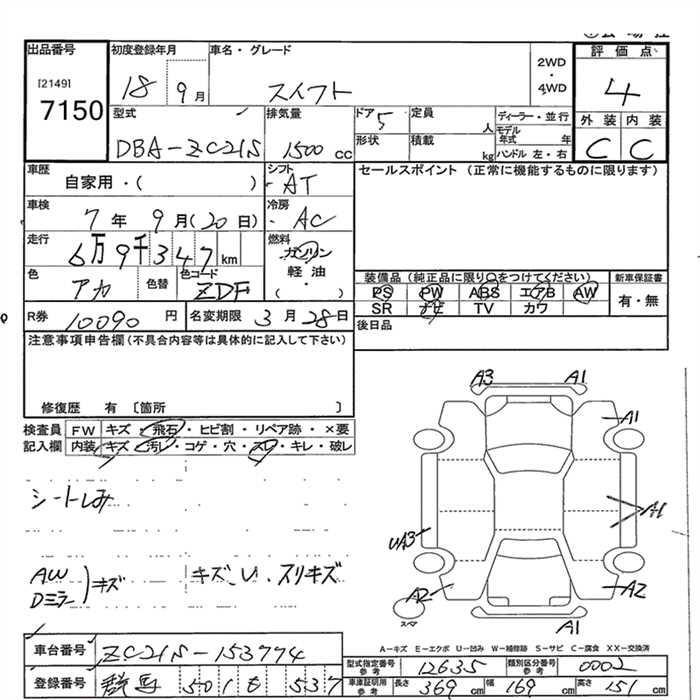 出品番号
[2149]
7150
初度登録年月
18 9月
車名・グレード
スイフト
2WD
・
4WD
評価点
4
外装 内装
C C
型式
DBA-ZC21S
排気量
1500 cc
ドア 5
形状
定員 人
積載 kg
ディーラー・並行
モデル年式 年
ハンドル 左・右
車歴
自家用・( )
シフト
AT
車検
7年 9月(20日)
冷房
AC
走行
6万9千347km
燃料
ガソリン
軽油
・( )
色
アカ
色替
色コード
ZDF
R券 10090円
名変期限 3月28日
セールスポイント (正常に機能するものに限ります)
装備品(純正品に限り○をつけてください)
PS PW ABS エアB AW
SR ナビ TV カワ
新車保証書
有・無
後日品
注意事項申告欄(不具合内容等は具体的に記入して下さい)
修復歴 有 〔箇所 〕
検査員
記入欄
FW キズ・飛石・ヒビ割・リペア跡・×要
内装 キズ・汚レ・コゲ・穴・スレ・キレ・破レ
シートしみ
AW
Dミラー )キズ
キズ、U、スリキズ
A3 A1
A1
A1
UA3
A2 A2
スペア
A1
A-キズ E-エクボ U-凹み W-補修跡 S-サビ C-腐食 XX-交換済
車台番号 ZC21S-153774
登録番号 群馬 501 も 537
型式指定番号 参考 12635
類別区分番号 参考 0002
車庫証明用 参考 長さ 369 cm 幅 169 cm 高さ 151 cm